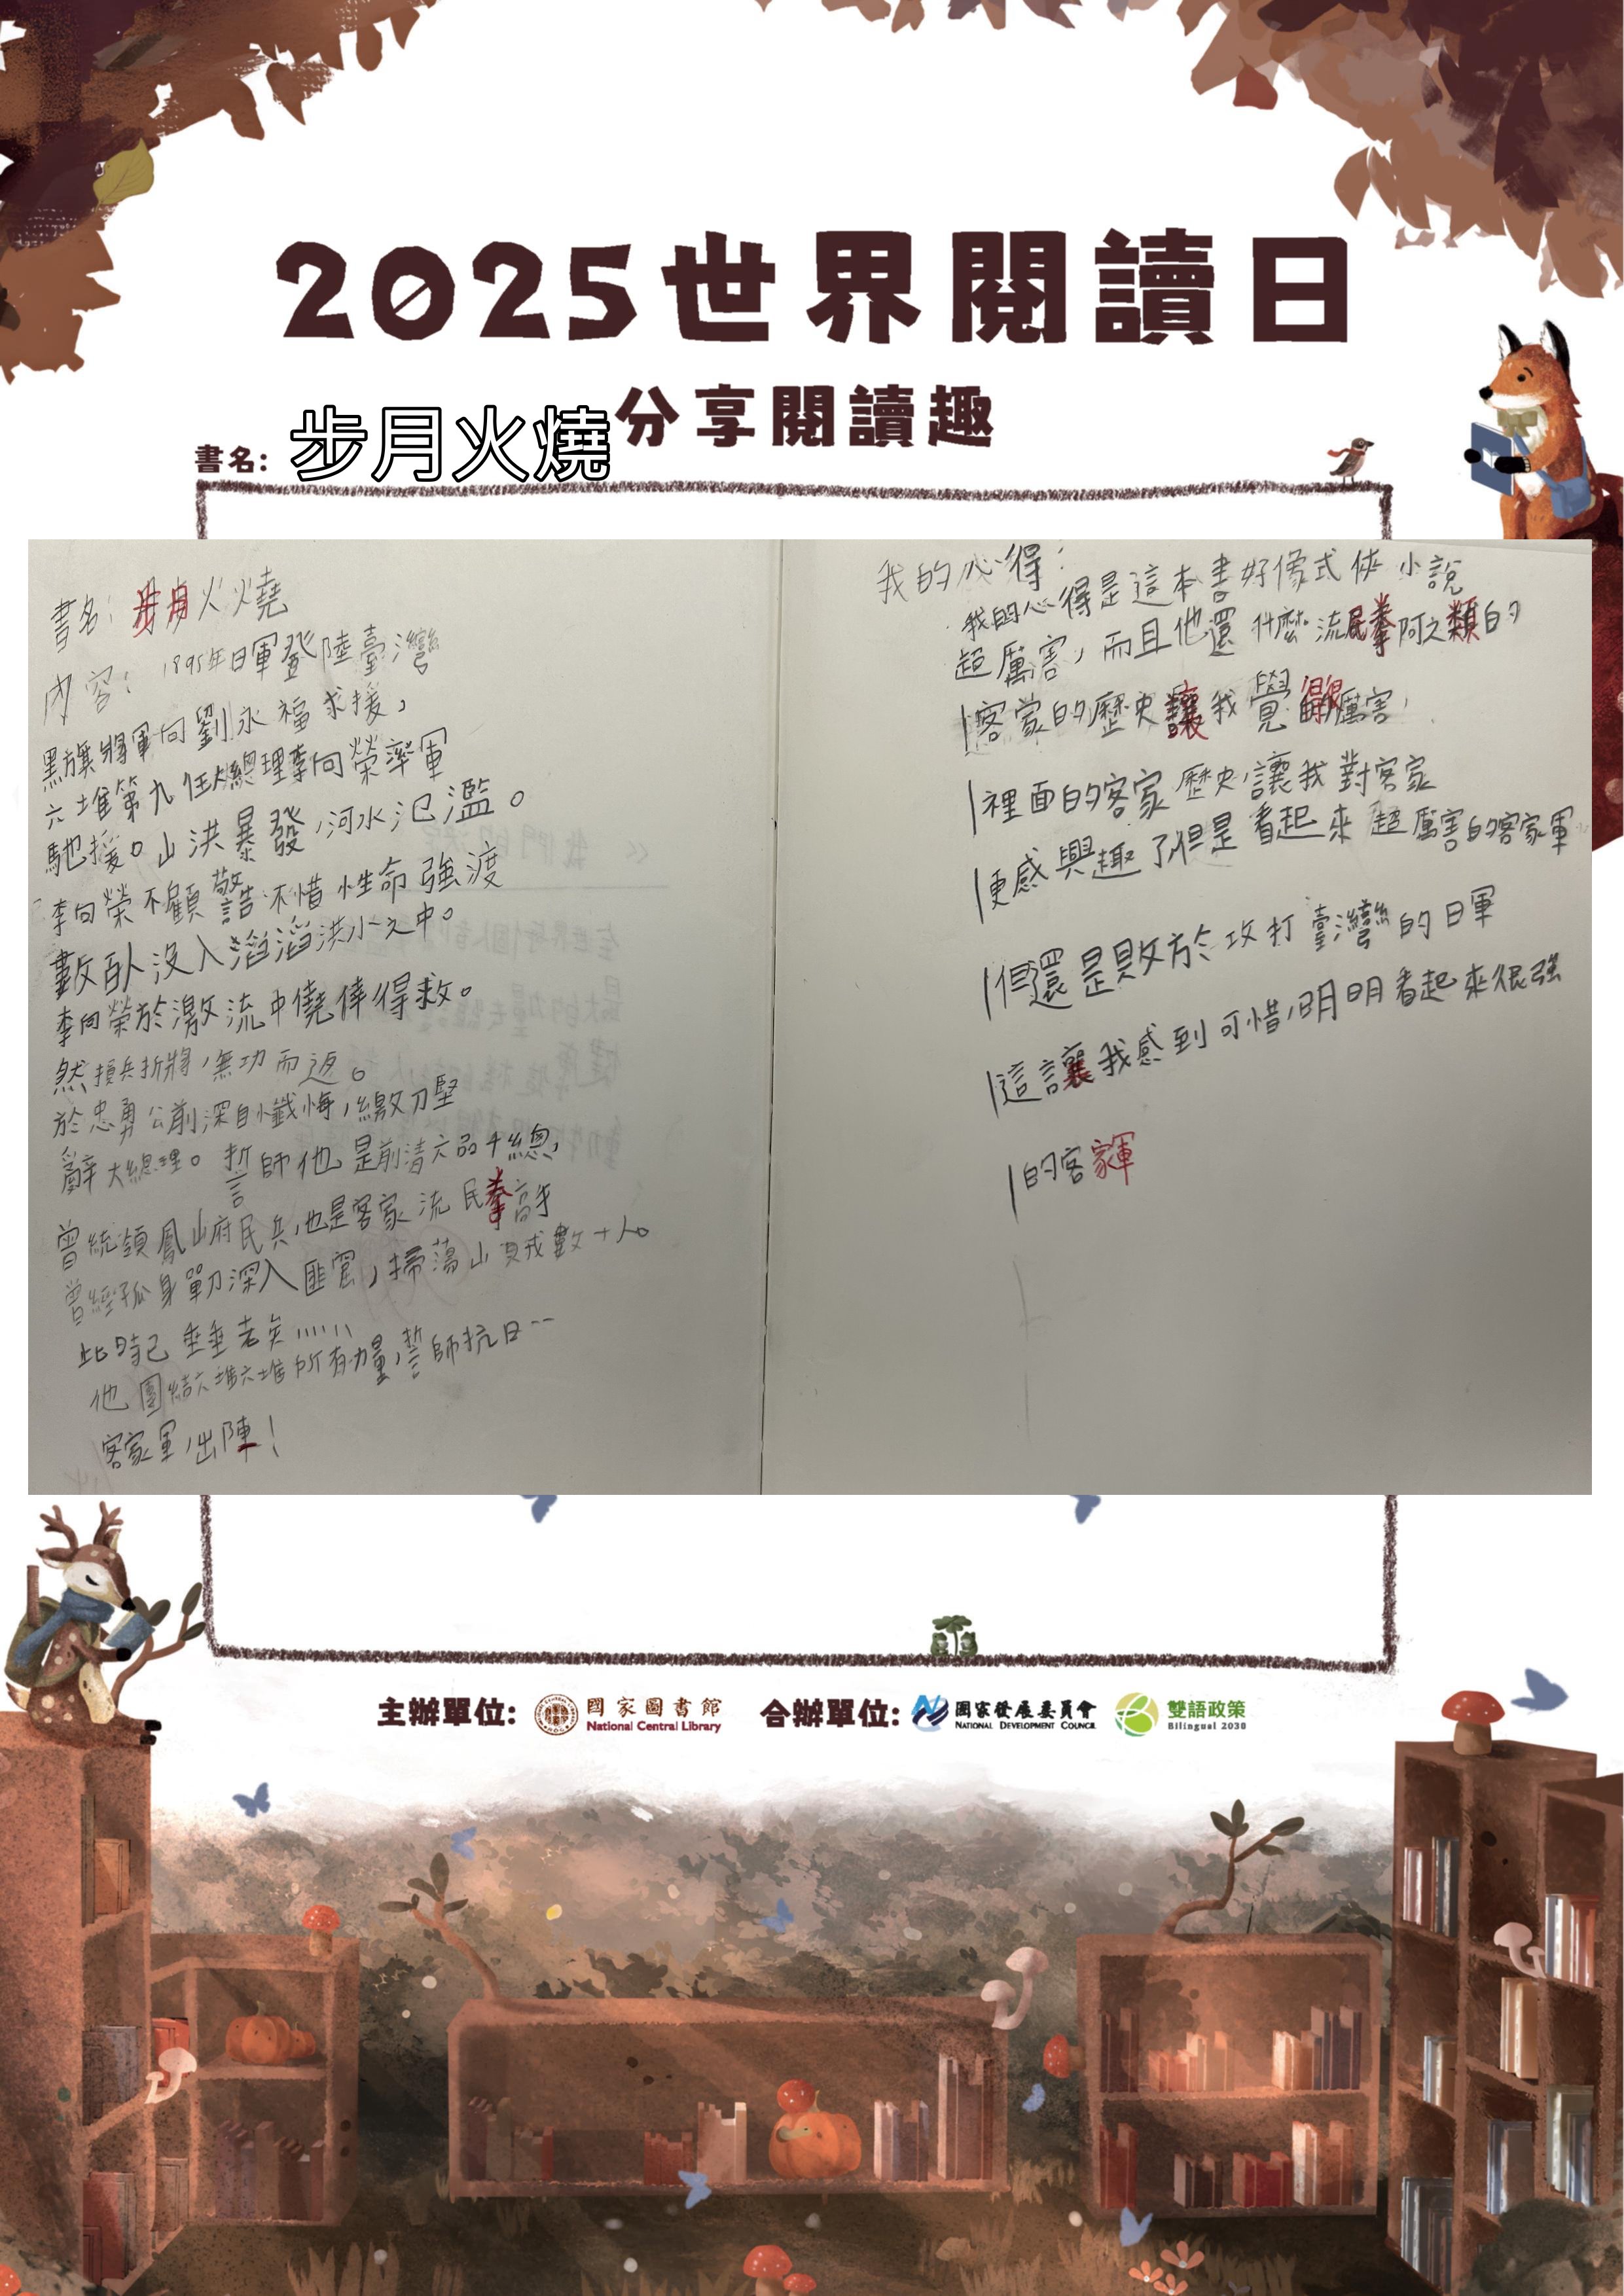 2025世界閱讀日
分享閱讀趣
書名: 步月火燒
書名: 步月火燒
內容: 1895年日軍登陸臺灣
黑旗將軍向劉永福求援，
六堆第九任大總理李向榮率軍
馳援。山洪暴發，河水氾濫。
李向榮不顧警誥不惜性命強渡
數百卜沒入滔滔洪水之中。
李向榮於激流中僥倖得救。
然損兵折將，無功而返。
於忠勇公前深自懺悔，繳刀堅
辭大總理。誓師他是前清六品千總，
曾統領鳳山府民兵，也是客家流民拳高手
曾經孤身單刀深入匪窟，掃蕩山賊數十人。
此時已垂垂老矣……
他團結六堆六堆所有力量，誓師抗日--
客家軍，出陣！
我的心得：
我的心得是這本書好像式俠小說
超厲害，而且他還什麼流民拳阿之類的
客家的歷史讓我覺得很厲害，
裡面的客家歷史，讓我對客家
更感興趣了但是看起來超厲害的客家軍
但還是敗於攻打臺灣的日軍
這讓我感到可惜，明明看起來很強
的客家軍
主辦單位: 國家圖書館 National Central Library 合辦單位: 國家發展委員會 NATIONAL DEVELOPMENT COUNCIL 雙語政策 Bilingual 2030